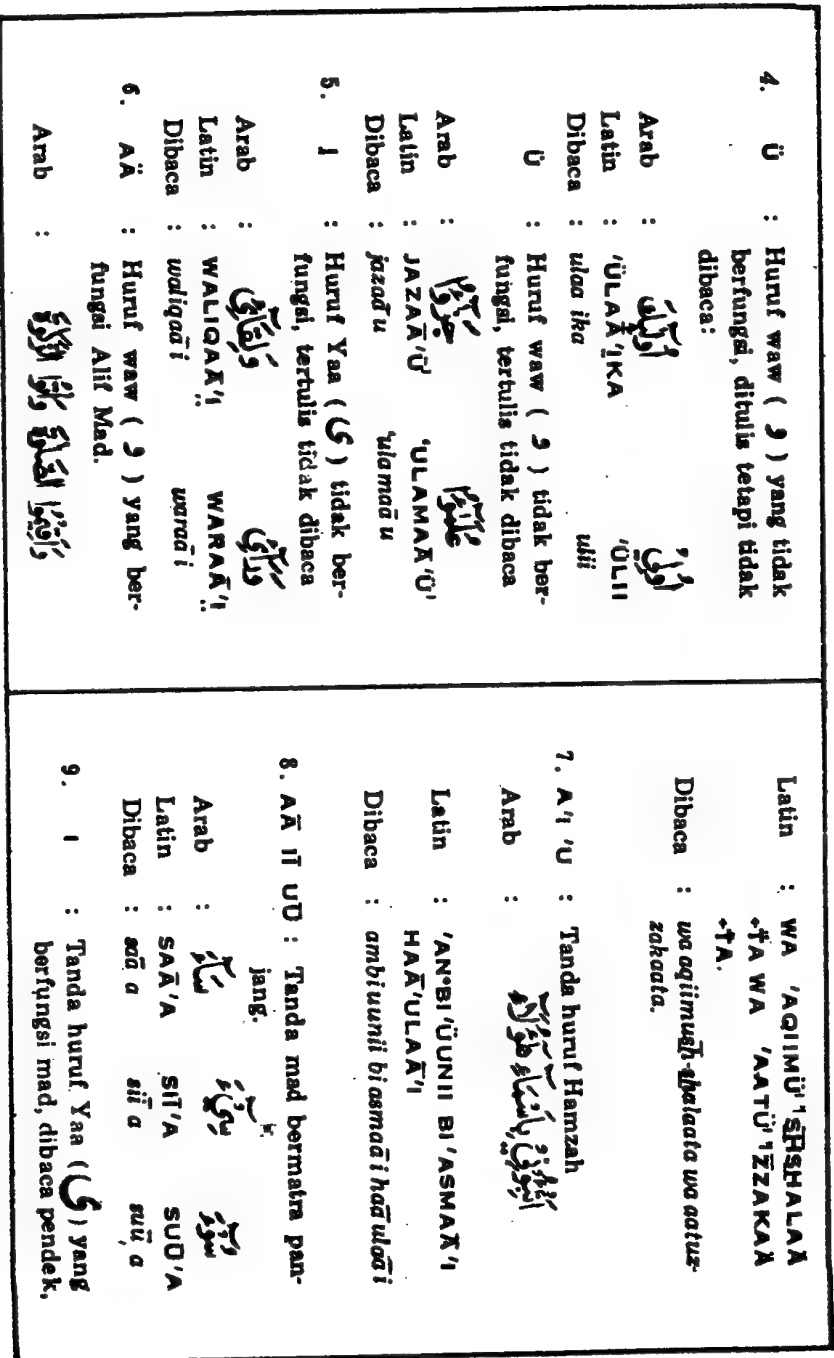 4. Ü : Huruf waw ( و ) yang tidak
berfungsi, ditulis tetapi tidak
dibaca:
Arab : أُولٰٓئِكَ أُولِي
Latin : 'ÜLAǠ'ỊKA 'ÜLII
Dibaca : ulaa ika ulii
Ü : Huruf waw ( و ) tidak ber-
fungsi, tertulis tidak dibaca
Arab : جَزَٓاؤُا عُلَمَٓاؤُا
Latin : JAZAĀ'Ü' 'ULAMAĀ'Ü'
Dibaca : jazaā u 'ulamaā u
5. I : Huruf Yaa ( ى ) tidak ber-
fungsi, tertulis tidak dibaca
Arab : وَلِقَآئِ وَرَآئِ
Latin : WALIQAĀ'I WARAĀ'I
Dibaca : waliqaā i waraā i
6. AÄ : Huruf waw ( و ) yang ber-
fungsi Alif Mad.
Arab : وَأَقِيمُوا الصَّلٰوةَ وَاٰتُوا الزَّكٰوةَ
Latin : WA 'AQIIMÜ' 1S̄HSHALAÄ
+TA WA 'AATÜ' 1Z̄ZAKAÄ
+TA.
Dibaca : wa aqiimush-shalaata wa aatuz-
zakaata.
7. A 'I 'U : Tanda huruf Hamzah
Arab : أَنْبِئُونِي بِأَسْمَآءِ هٰٓؤُلَآءِ
Latin : 'AN°BI'ÜUNII BI'ASMAĀ'I
HAĀ'ULAĀ'I
Dibaca : ambiuunii bi asmaā i haā ulaā i
8. AĀ IĪ UŪ : Tanda mad bermatra pan-
jang.
Arab : سَآءَ سِيٓءَ سُوٓءَ
Latin : SAĀ'A SIĪ'A SUŪ'A
Dibaca : saā a siī a suū a
9. I : Tanda huruf Yaa ((ى) yang
berfungsi mad, dibaca pendek,